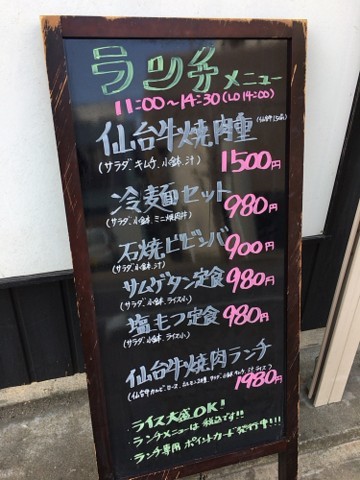 ランチメニュー
11:00〜14:30(LO 14:00)
仙台牛焼肉重
(サラダ、キムチ、小鉢、汁) 1500円
冷麺セット 980円
(サラダ、小鉢、ミニ焼肉丼)
石焼ビビンバ 900円
(サラダ、小鉢、汁)
サムゲタン定食 980円
(サラダ、小鉢、ライス小)
塩もつ定食 980円
(サラダ、小鉢、ライス小)
仙台牛焼肉ランチ
1980円
・ライス大盛OK!
・ランチメニューは税込です!!
・ランチ専用ポイントカード発行中!!!